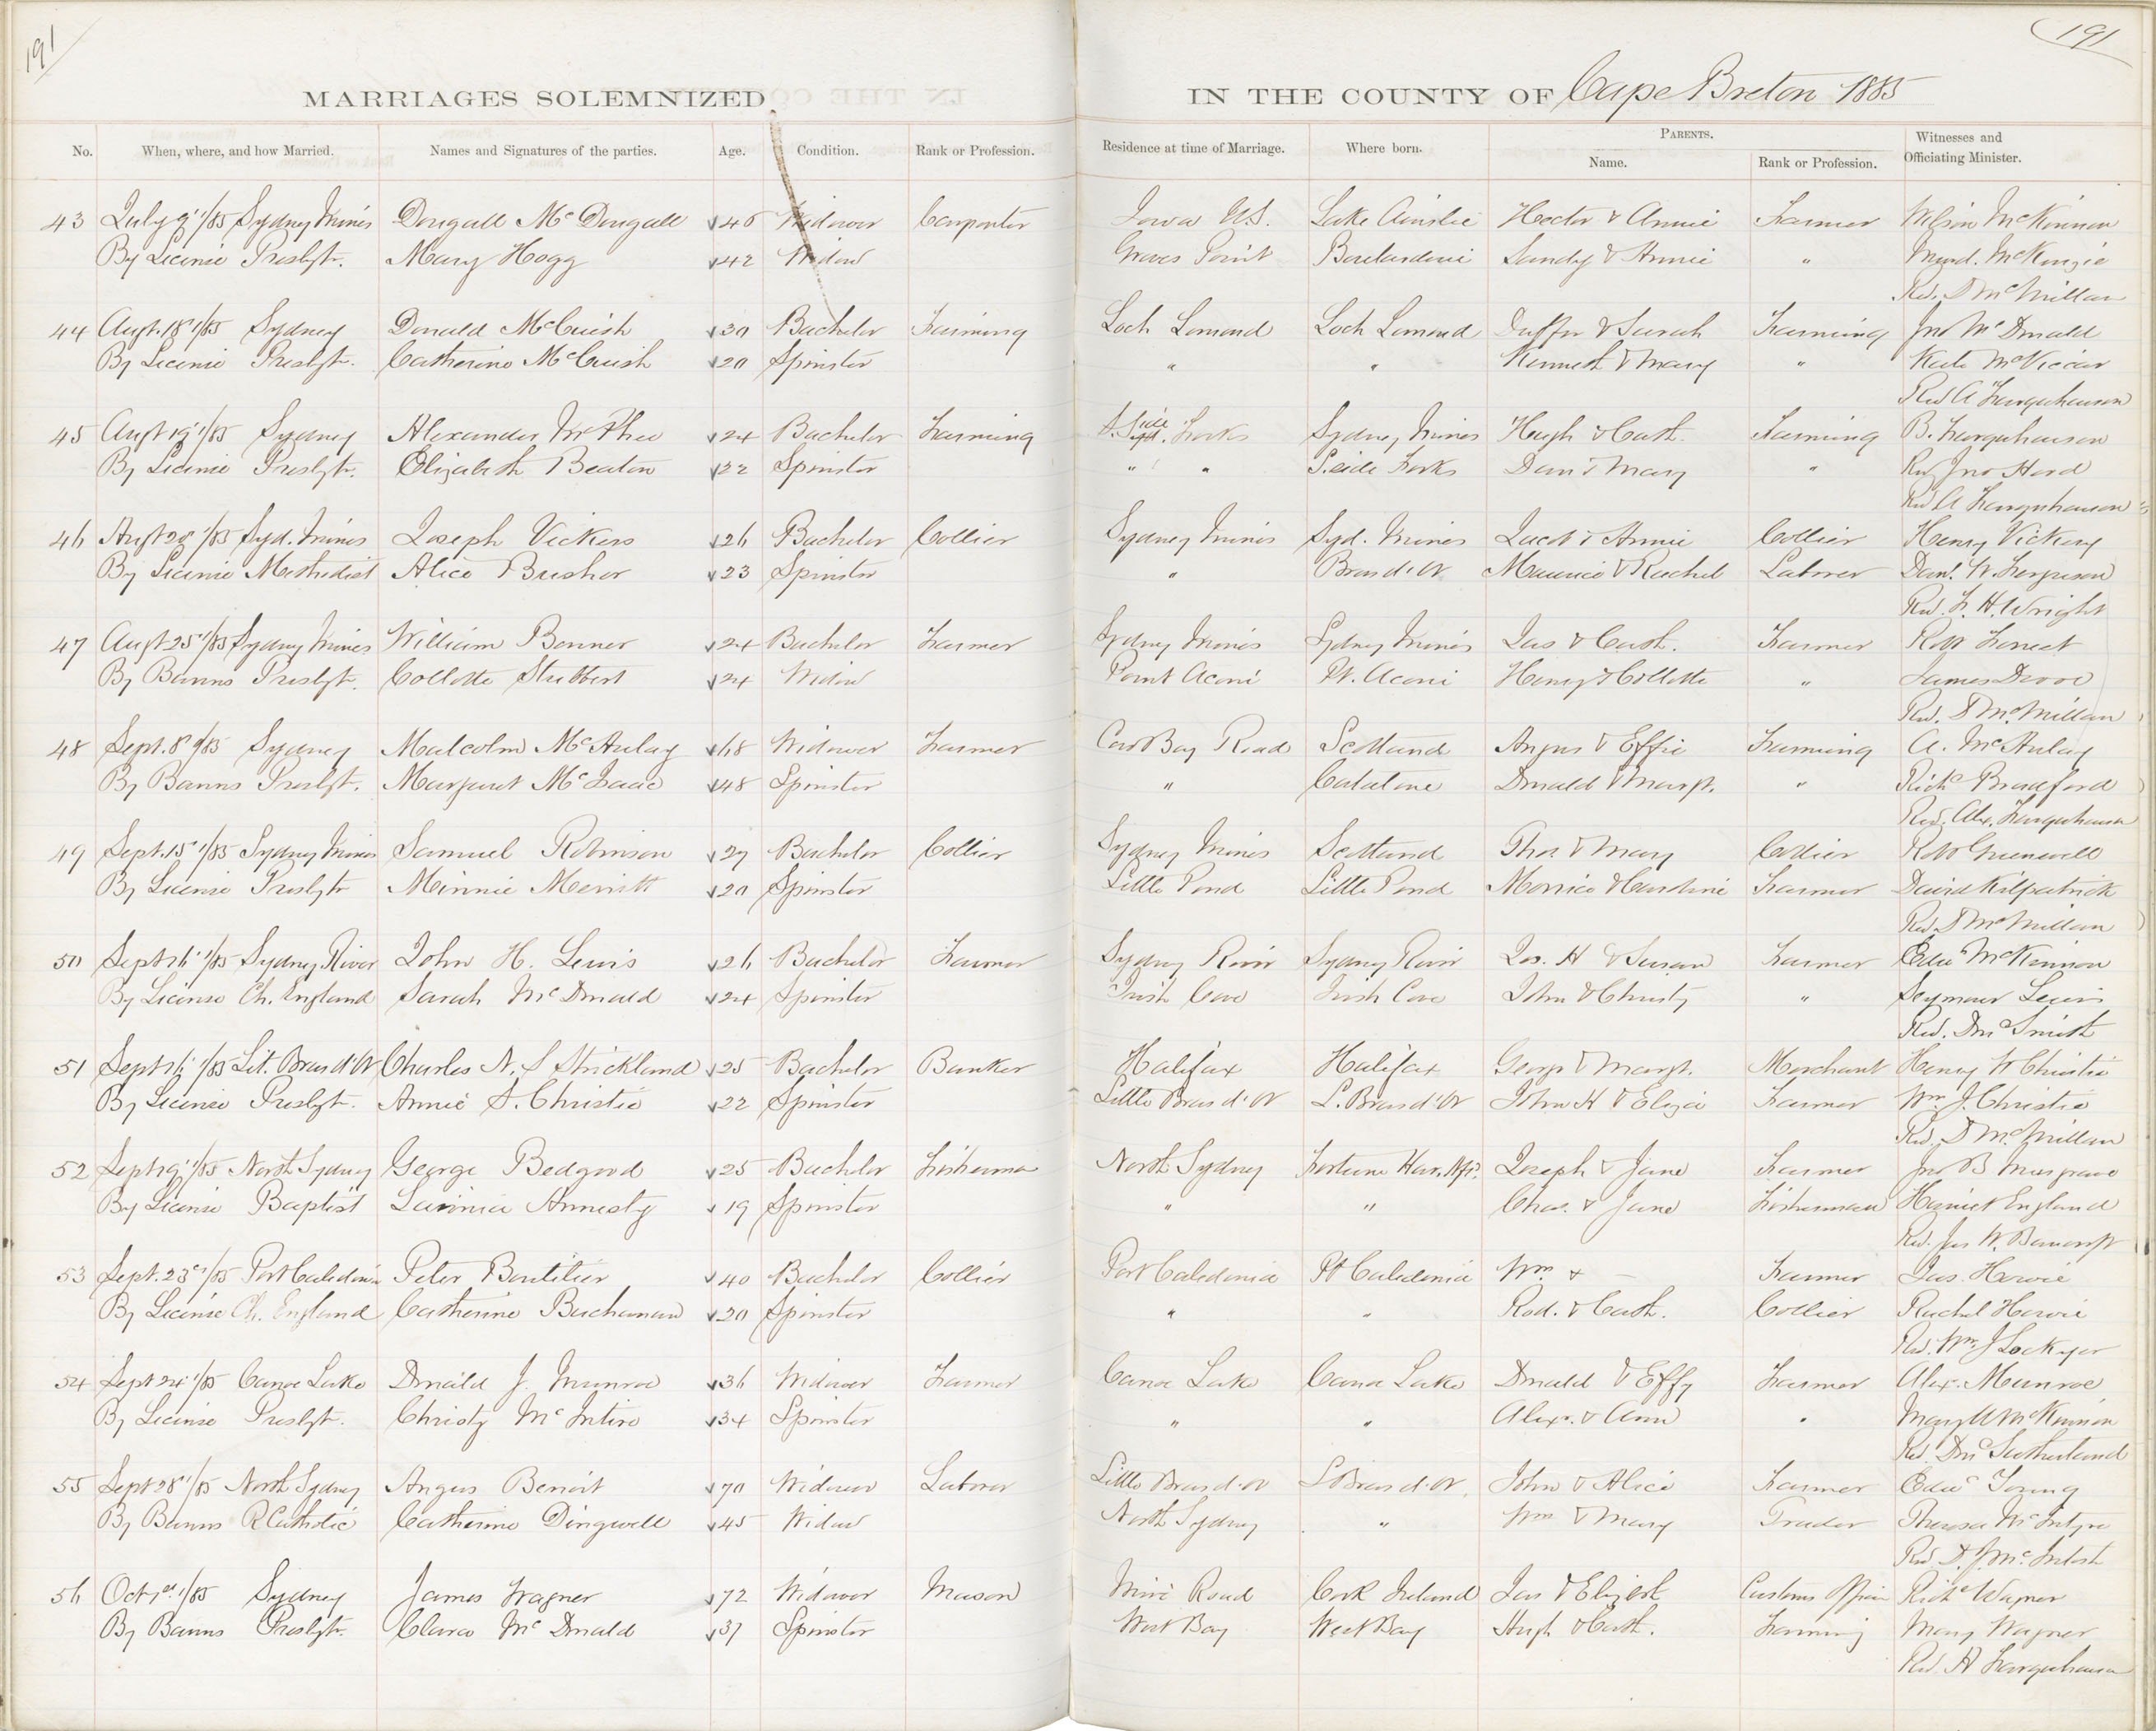 191
191
MARRIAGES SOLEMNIZED IN THE COUNTY OF Cape Breton 1885
PARENTS.
No. When, where, and how Married. Names and Signatures of the parties. Age. Condition. Rank or Profession. Residence at time of Marriage. Where born. Name. Rank or Profession. Witnesses and Officiating Minister.
43 July 9" 1/85 Sydney Mines Dougall McDougall 46 Widower Carpenter Iowa U.S. Lake Ainslie Hector & Annie Farmer Wilson McKinnon
By License Presbyt. Mary Hogg 42 Widow Groves Point Boularderie Sandy & Annie " Murd. McKenzie
Rev. D McMillan
44 Augt. 18" 1/85 Sydney Donald McCuish 30 Bachelor Farming Loch Lomond Loch Lomond & Sarah Farming Jno McDonald
By License Presbyt. Catherine McCuish 20 Spinster " " Kenneth & Mary " Kate McVicar
Rev A Farquharson
45 Augt 19" 1/85 Sydney Alexander McPhee 24 Bachelor Farming S. Side Syd. Forks Sydney Mines Hugh & Cath. Farming B. Farquharson
By License Presbyt. Elizabeth Beaton 22 Spinster " " S. side Forks Dan & Mary " Rev Jno
Rev A Farquharson
46 Augt 20" 1/85 Syd. Mines Joseph Vickers 26 Bachelor Collier Sydney Mines Syd. Mines Jacob & Annie Collier Henry Vickery
By License Methodist Alice Brushor 23 Spinster " Bras d'Or Maurice & Rachel Laborer Danl. W. Ferguson
Rev. F. H. Wright
47 Augt 25" 1/85 Sydney Mines William Bonner 24 Bachelor Farmer Sydney Mines Sydney Mines Jas & Cath. Farmer Robt
By Banns Presbyt. Collotte Stubbert 24 Widow Point Aconi Pt. Aconi Henry & Collotte " James
Rev. D McMillan
48 Sept. 8" 9/85 Sydney Malcolm McAulay 68 Widower Farmer Cow Bay Road Scotland Angus & Effie Farming A. McAulay
By Banns Presbyt. Margaret McIsaac 48 Spinster " Catalone Donald & Margt. " Richd Bradford
Rev. Alex. Farquharson
49 Sept. 15" 1/85 Sydney Mines Samuel Robinson 27 Bachelor Collier Sydney Mines Scotland Thos & Mary Collier Robt Greenwell
By License Presbyt Minnie Merritt 20 Spinster Little Pond Little Pond Morrice & Caroline Farmer David Kilpatrick
Rev. D McMillan
50 Sept 16" 1/85 Sydney River John H. Lewis 26 Bachelor Farmer Sydney River Sydney River Jos. H & Susan Farmer Edwd McKinnon
By License Ch. England Sarah McDonald 24 Spinster Irish Cove Irish Cove John & Christy " Seymour Lewis
Rev. Dd Smith
51 Sept 16" 1/85 Lit. Bras d'Or Charles N. S Strickland 25 Bachelor Banker Halifax Halifax George & Margt. Merchant Henry W Christie
By License Presbyt. Annie S. Christie 22 Spinster Little Bras d'Or L. Bras d'Or John H & Eliza Farmer Wm J. Christie
Rev. D McMillan
52 Sept 19" 1/85 North Sydney George Bedgood 25 Bachelor Fisherman North Sydney Fortune Har. Nfd. Joseph & Jane Farmer Jno B Musgrave
By License Baptist Lavinia Annesty 19 Spinster " " Chas. & Jane Fisherman Harriet England
Rev. Jas W. Bancroft
53 Sept. 23d 1/85 Port Caledonia Peter Boutilier 40 Bachelor Collier Port Caledonia Pt Caledonia Wm & — Farmer Jas. Howie
By License Ch. England Catherine Buchanan 20 Spinster " " Rod. & Cath. Collier Rachel Howie
Rev. Wm J Lockyer
54 Sept 24" 1/85 Canoe Lake Donald J. Munroe 36 Widower Farmer Canoe Lake Canoe Lake Donald & Effy Farmer Alex. Munroe
By License Presbyt. Christy McIntire 34 Spinster " " Alexr. & Ann " Mary A McKinnon
Rev. Dd Sutherland
55 Sept 28" 1/85 North Sydney Angus Benoit 70 Widower Laborer Little Bras d'Or L Bras d'Or John & Alice Farmer Edwd Young
By Banns R Catholic Catherine Dingwell 45 Widow North Sydney " Wm & Mary Trader Theresa McIntyre
Rev D. J McIntosh
56 Oct 1st 1/85 Sydney James Wagner 72 Widower Mason Mira Road Cork Ireland Jas & Elizabt Customs Officer Richd Wagner
By Banns Presbyt. Clara McDonald 37 Spinster West Bay West Bay Hugh & Cath. Farming Mary Wagner
Rev. A Farquharson